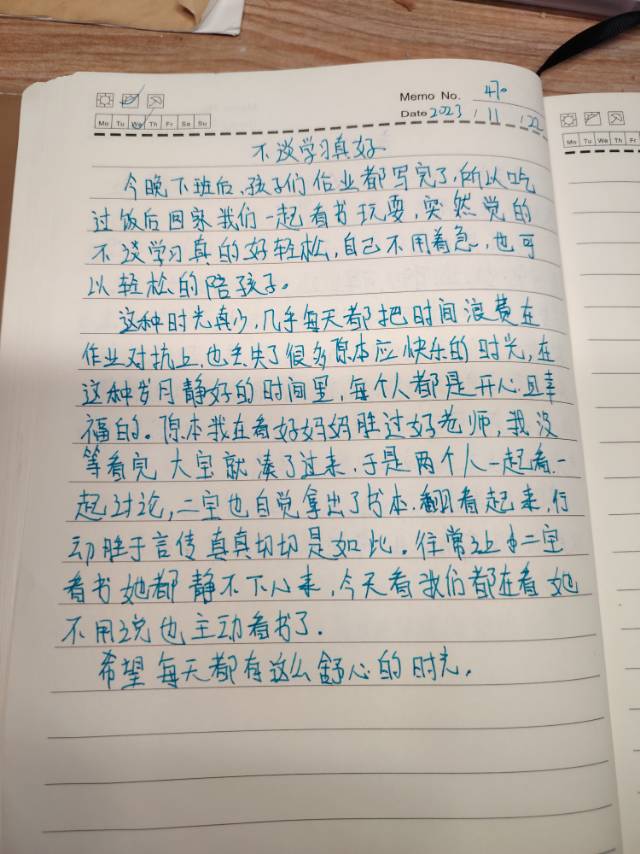 Memo No. 470
Mo Tu We Th Fr Sa Su
Date 2023 / 11 / 22
Mo Tu We Th Fr
不谈学习真好
今晚下班后,孩子们作业都写完了,所以吃
过饭后回家我们一起看书玩耍,突然觉的
不谈学习真的好轻松,自己不用着急,也可
以轻松的陪孩子。
这种时光真少,几乎每天都把时间浪费在
作业对抗上,也丢失了很多原本应快乐的时光,在
这种岁月静好的时间里,每个人都是开心且幸
福的。原本我在看好妈妈胜过好老师,我没
等看完大宝就凑了过来,于是两个人一起看,一
起讨论,二宝也自觉拿出了书本,翻看起来,行
动胜于言传真真切切是如此。往常让二宝
看书她都静不下心来,今天看我们都在看她
不用说也主动看书了.
希望每天都有这么舒心的时光,